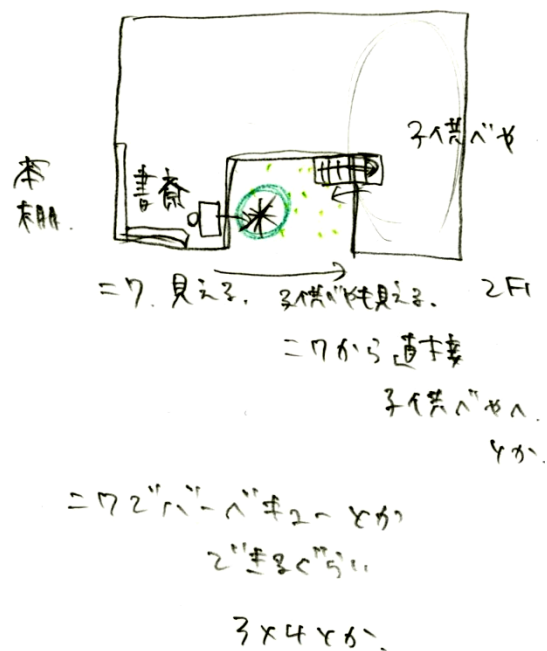 子供べや
本棚.
書斎
ニワ 見える. 子供べやも見える. 2F
ニワから直接
子供べやへ.
とか.
ニワでバーベキューとか
できるぐらい
3×4とか.